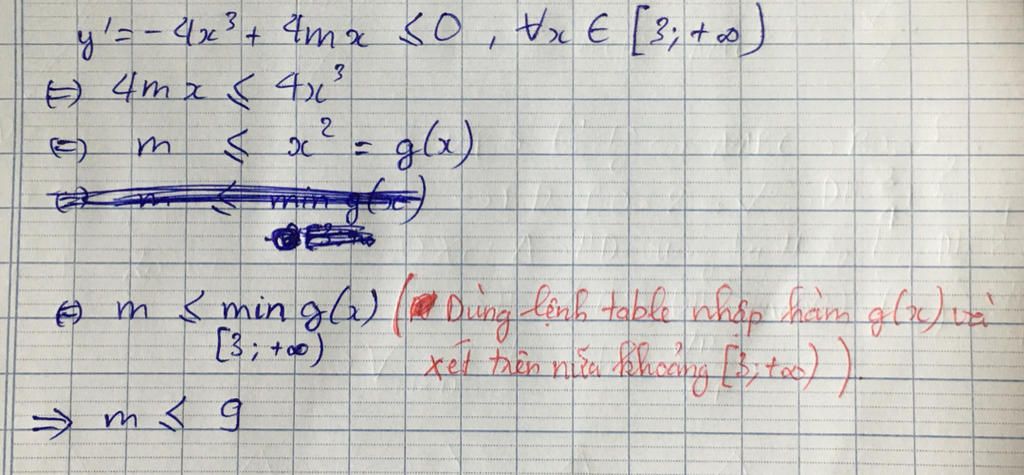 y' = -4x³ + 4mx ≤ 0 , ∀x ∈ [3; +∞)
⇔ 4mx ≤ 4x³
⇔ m ≤ x² = g(x)
⇔ m ≤ min g(x)
⇔ m ≤ min g(x) ( Dùng lệnh table nhập hàm g(x) và
[3; +∞) xét trên nửa khoảng [3; +∞) ).
⇒ m ≤ 9